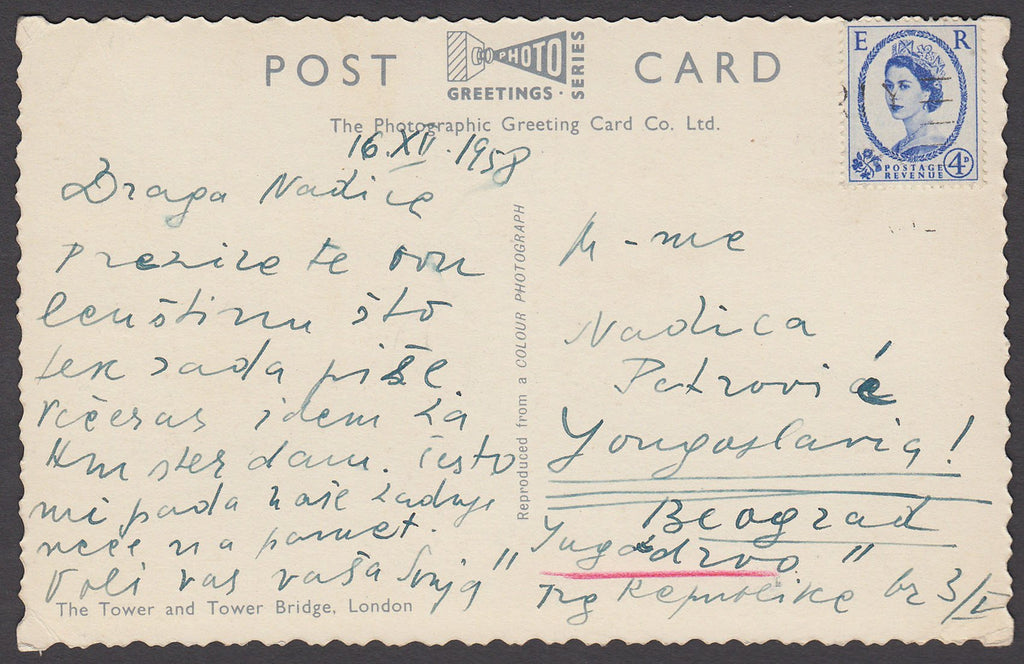 POST CARD
PHOTO
GREETINGS · SERIES
The Photographic Greeting Card Co. Ltd.
E R
POSTAGE
REVENUE
4D
16.XII.1958
Draga Nadice
što
tek sada piše.
Večeras idem za
Amsterdam. često
mi pada naše zadnje
veče na pamet.
Voli vas vaša Sonja
Reproduced from a COLOUR PHOTOGRAPH
M-me
Nadica
Petrović
Yougoslavia!
Beograd
"Jugodrvo"
Trg Republike br 3/V
The Tower and Tower Bridge, London